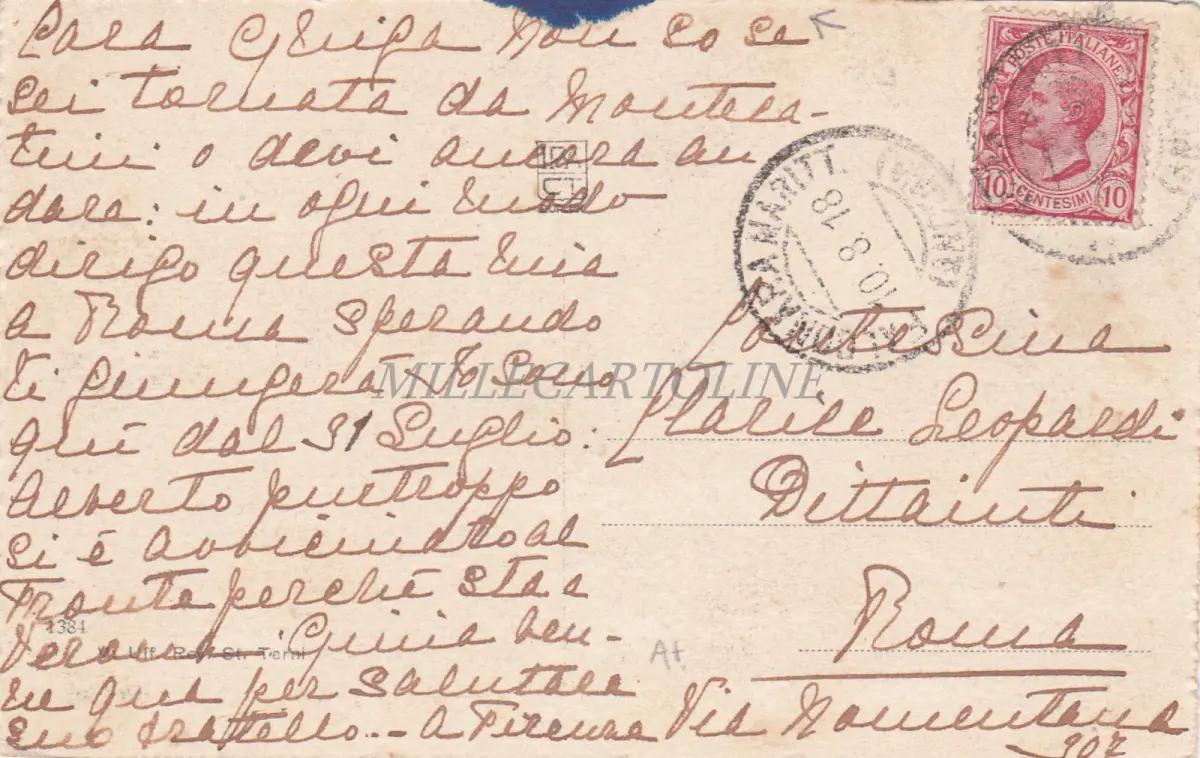 Cara Ghiga non so se
sei tornata da Monteca-
tini o devi ancora an
dare: in ogni modo
dirigo questa mia
a Roma sperando
ti giungerà. Io sono
qui dal 31 Luglio:
Alberto purtroppo
si è avvicinato al
fronte perché sta a
Verona. Ginia ven-
ne qua per salutare
suo fratello... A Firenze
POSTE ITALIANE
10 CENTESIMI 10
MARITT.
10.8.18
MILLECARTOLINE
Contessina
Clarice Leopardi
Dittajuti
Roma
Via Nomentana
1384
Uff. Rev. St. Terni
At.